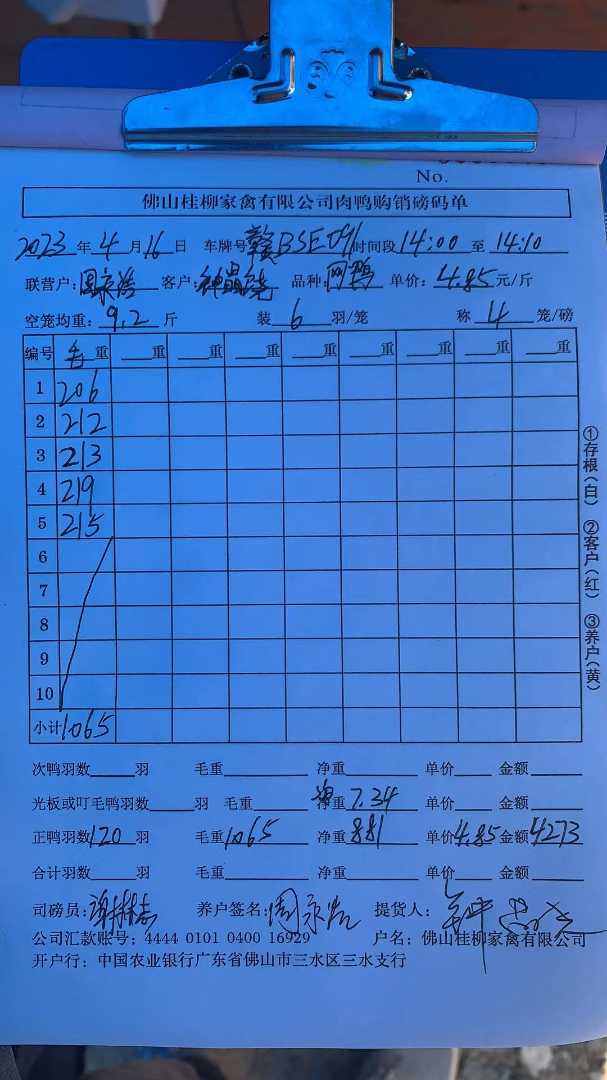 No.
佛山桂柳家禽有限公司肉鸭购销磅码单
2023年4月16日 车牌号赣BSE091时间段14:00至14:10
联营户:周永浩 客户: 品种: 鸭 单价:4.85元/斤
空笼均重:9.2斤 装6羽/笼 称4笼/磅
编号 毛重 重 重 重 重 重 重 重 重
1 206
2 212
3 213
4 219
5 215
6
7
8
9
10
小计 1065
次鸭羽数 羽 毛重 净重 单价 金额
光板或叮毛鸭羽数 羽 毛重 净重 7.34 单价 金额
正鸭羽数120羽 毛重1065 净重881 单价4.85 金额4273
合计羽数 羽 毛重 净重 单价 金额
司磅员: 养户签名:周永浩 提货人:
公司汇款账号: 4444 0101 0400 16929 户名: 佛山桂柳家禽有限公司
开户行: 中国农业银行广东省佛山市三水区三水支行
①存根(白) ②客户(红) ③养户(黄)